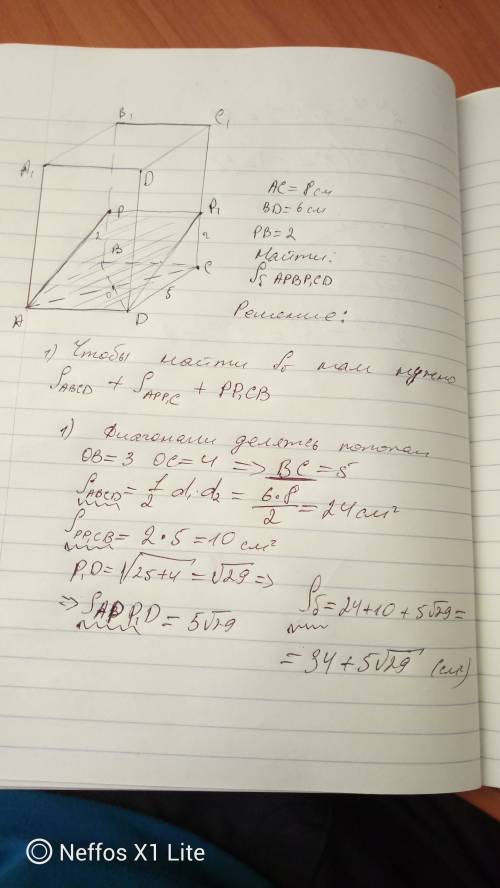 B₁ C₁
A₁ D
P P₁
2 2
B C
O 5
A D
AC = 8 см
BD = 6 см
PB = 2
Найти:
Sб APBP₁CD
Решение:
1) Чтобы найти Sб нам нужно
S ABCD + S APP₁C + PP₁CB
1) Диагонали делятся пополам
OB = 3 OC = 4 => BC = 5
S ABCD = 1/2 d₁·d₂ = 6·8/2 = 24 см²
S PP₁CB = 2·5 = 10 см²
P₁D = √25+4 = √29 =>
=> S APP₁D = 5√29
Sб = 24+10+5√29 =
= 34+5√29 (см²)
Neffos X1 Lite